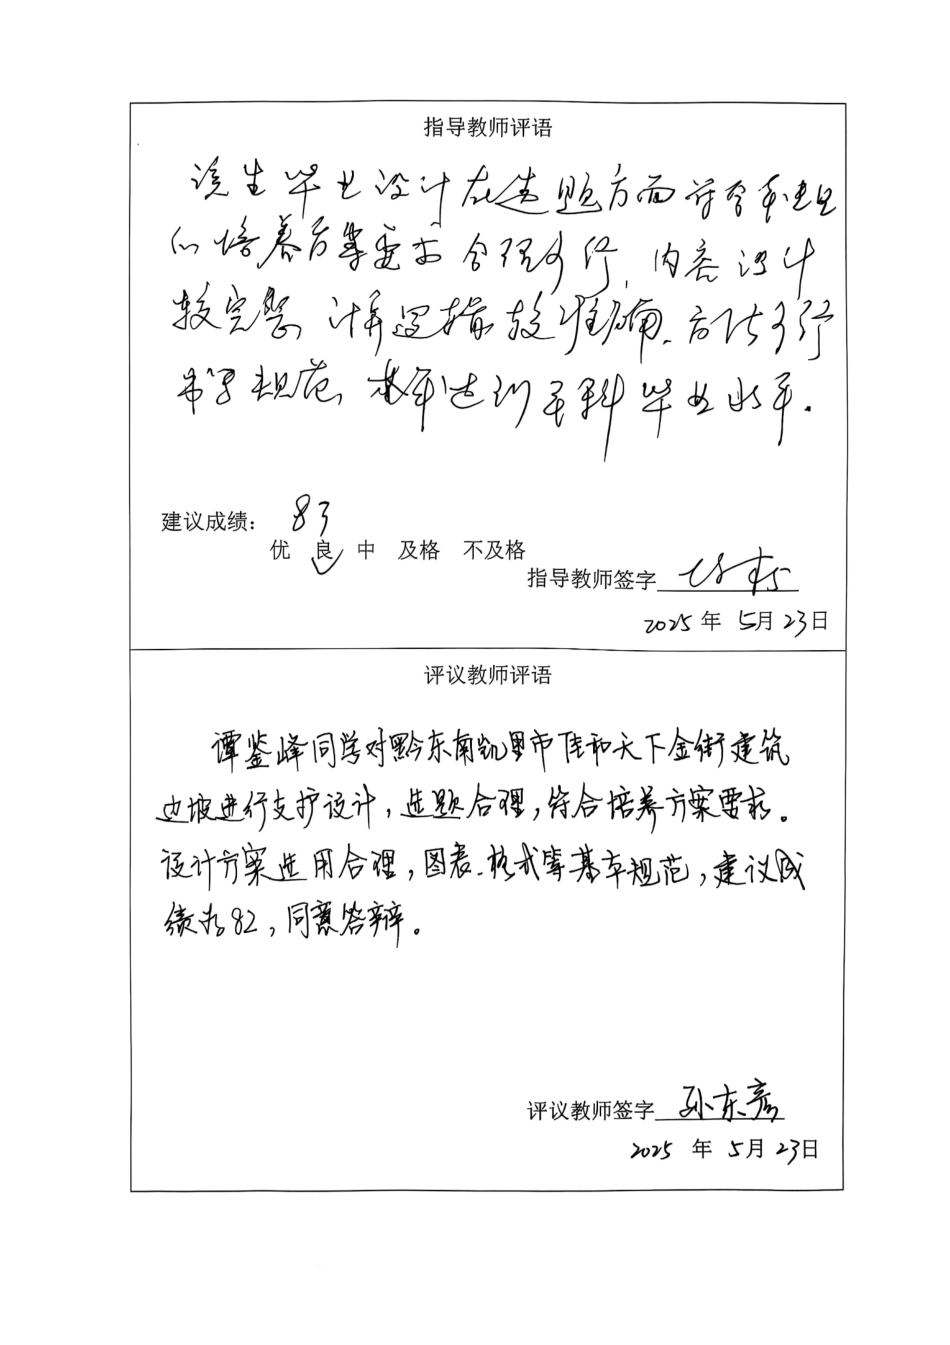 指导教师评语
该生毕业设计在选题方面符合本专业
的培养方案要求,合理可行,内容设计
较完整,计算逻辑较准确,方法可行
书写规范,基本达到本科毕业水平.
建议成绩: 83
优 良 中 及格 不及格
指导教师签字
2025 年 5月 23日
评议教师评语
谭鉴峰同学对黔东南凯里市佳和天下金街建筑
边坡进行支护设计,选题合理,符合培养方案要求。
设计方案选用合理,图表、格式等基本规范,建议成
绩为82,同意答辩。
评议教师签字 孙东彦
2025 年 5月 23日